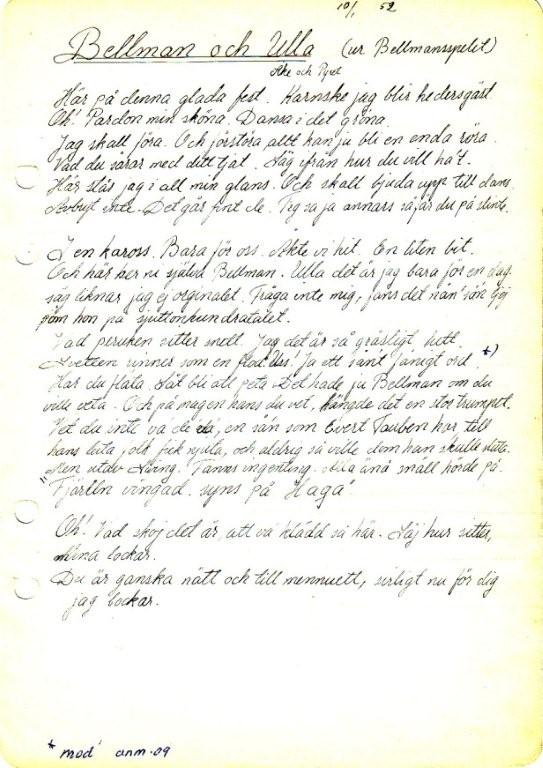 10/1 52
Bellman och Ulla (ur Bellmansspelet)
Åke och Pyret
Här på denna glada fest. Kanske jag blir hedersgäst
Oh! Pardon min sköna. Dansa i det gröna.
Jag skall föra. Och förstöra allt kan ju bli en enda röra.
Vad du sårar med ditt tjat. Säg ifrån hur du vill ha't.
Här slås jag i all min glans. Och skall bjuda upp till dans.
Avbryt inte. Det går fint de. Tyg sa ja annars så får du på
I en kaross. Bara för oss. Åkte vi hit. En liten bit.
Och här ser ni själva Bellman. Ulla det är jag bara för en dag.
säg liknar jag ej orginalet. Fråga inte mig, fans det nån' sån tjej
som hon på sjuttonhundratalet.
Vad peruken sitter snett. Jag det är så gräsligt hett.
Svetten rinner som en flod. Uss! Ja ett sånt fånigt ord. *)
Har du flöta. Låt bli att peta. Det hade ju Bellman om du
ville veta. Och på magen hans du vet, hängde det en stor trumpet.
Vet du inte va de va, en sån som Evert Taube har till
hans luta folk fick njuta, och aldrig så ville dom han skulle sluta.
Men utav Fanns ingenting. Alla ändå snäll hörde på.
"Fjäriln vingad syns på Haga"
Oh! Vad skoj det är, att va klädd så här. Säj hur sitter,
mina lockar.
Du är ganska nätt och till mennuett, sirligt nu för dig
jag bockar.
* mod' anm. 09